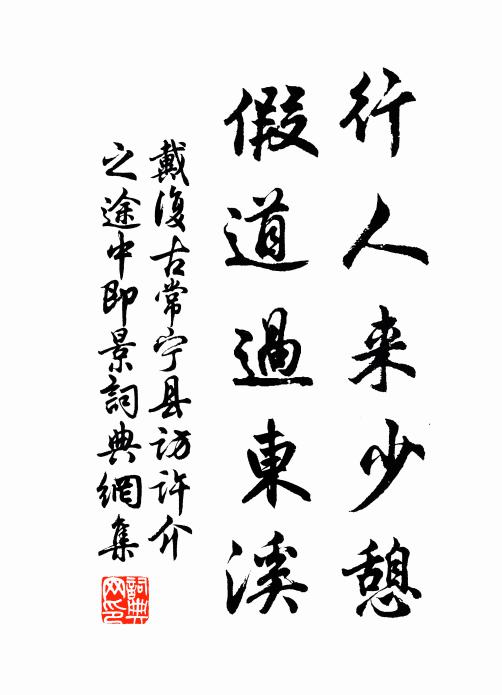 行人来少憩
假道過東溪
戴復古常宁县访許介
之途中即景詞典網集